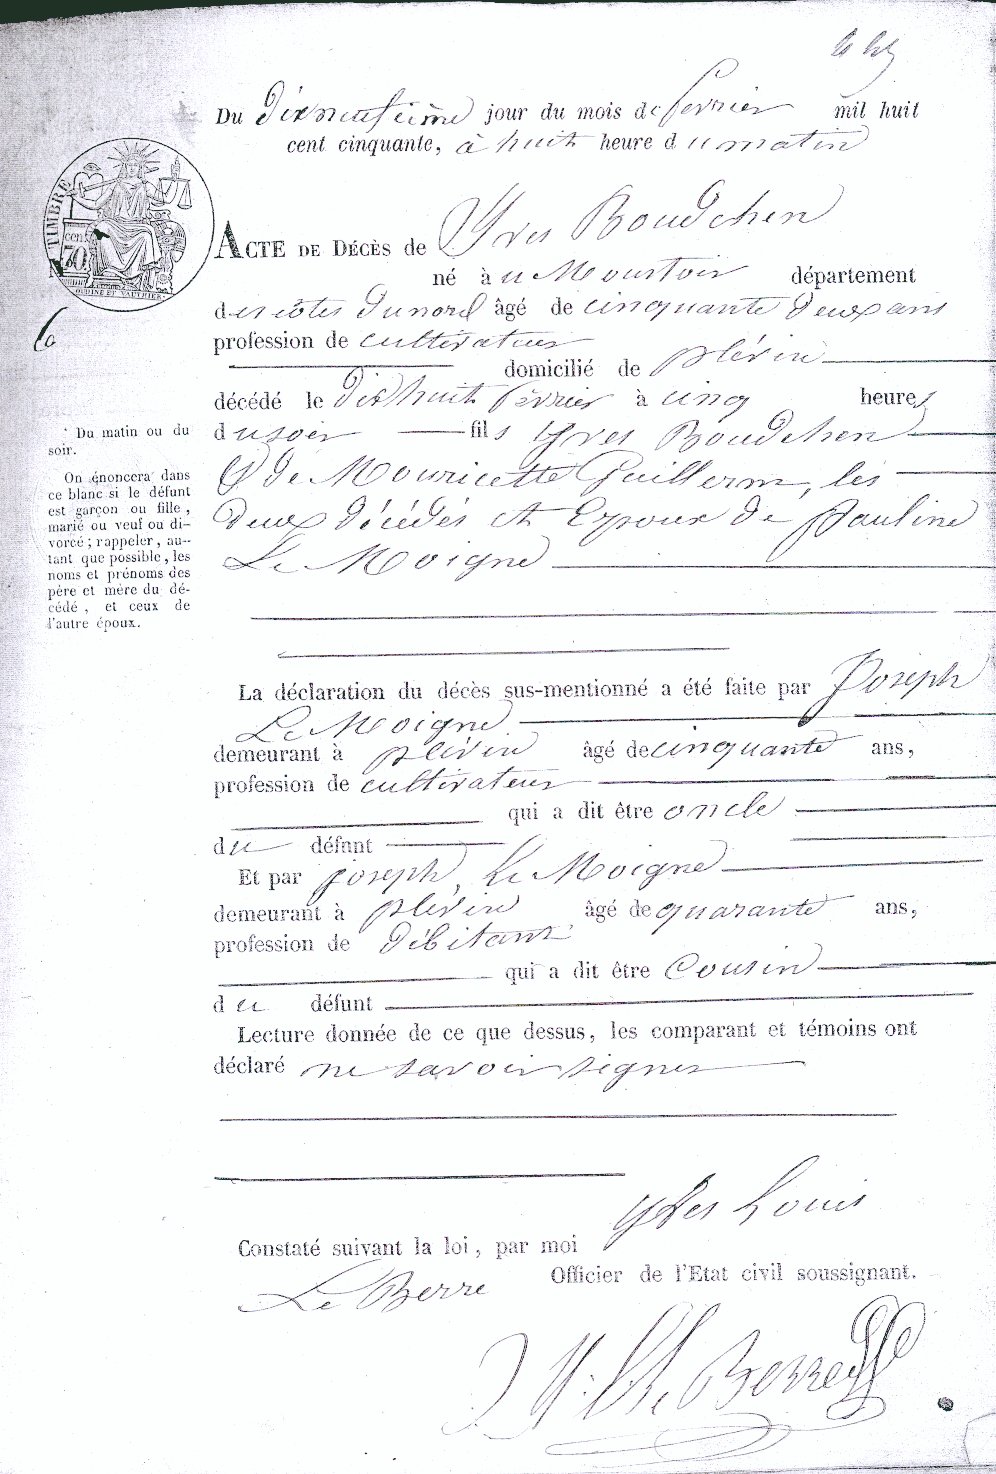 Du dixneufième jour du mois de février mil huit
cent cinquante, à huit heure du matin
TIMBRE
cen
50
OUDINÉ ET VAUTHIER.
ACTE DE DÉCÈS de Yves Boudehen
né à u Moustoir département
des côtes du nord âgé de cinquante deux ans
profession de cultivateur
domicilié de plévin
décédé le dix huit février à cinq heures
du soir fils Yves Boudehen
& de Mouricette Guillerm, les
deux décédés et Epoux de Pauline
Le Moigne
* Du matin ou du
soir.
On énoncera dans
ce blanc si le défunt
est garçon ou fille,
marié ou veuf ou di-
vorcé; rappeler, au-
tant que possible, les
noms et prénoms des
père et mère du dé-
cédé, et ceux de
l'autre époux.
La déclaration du décès sus-mentionné a été faite par Joseph
Le Moigne
demeurant à plévin âgé de cinquante ans,
profession de cultivateur
qui a dit être oncle
du défunt
Et par joseph, Le Moigne
demeurant à plévin âgé de quarante ans,
profession de débitant
qui a dit être Cousin
du défunt
Lecture donnée de ce que dessus, les comparant et témoins ont
déclaré ne savoir signer
Constaté suivant la loi, par moi Yves Louis
Le Berre Officier de l'Etat civil soussignant.
Le Berre